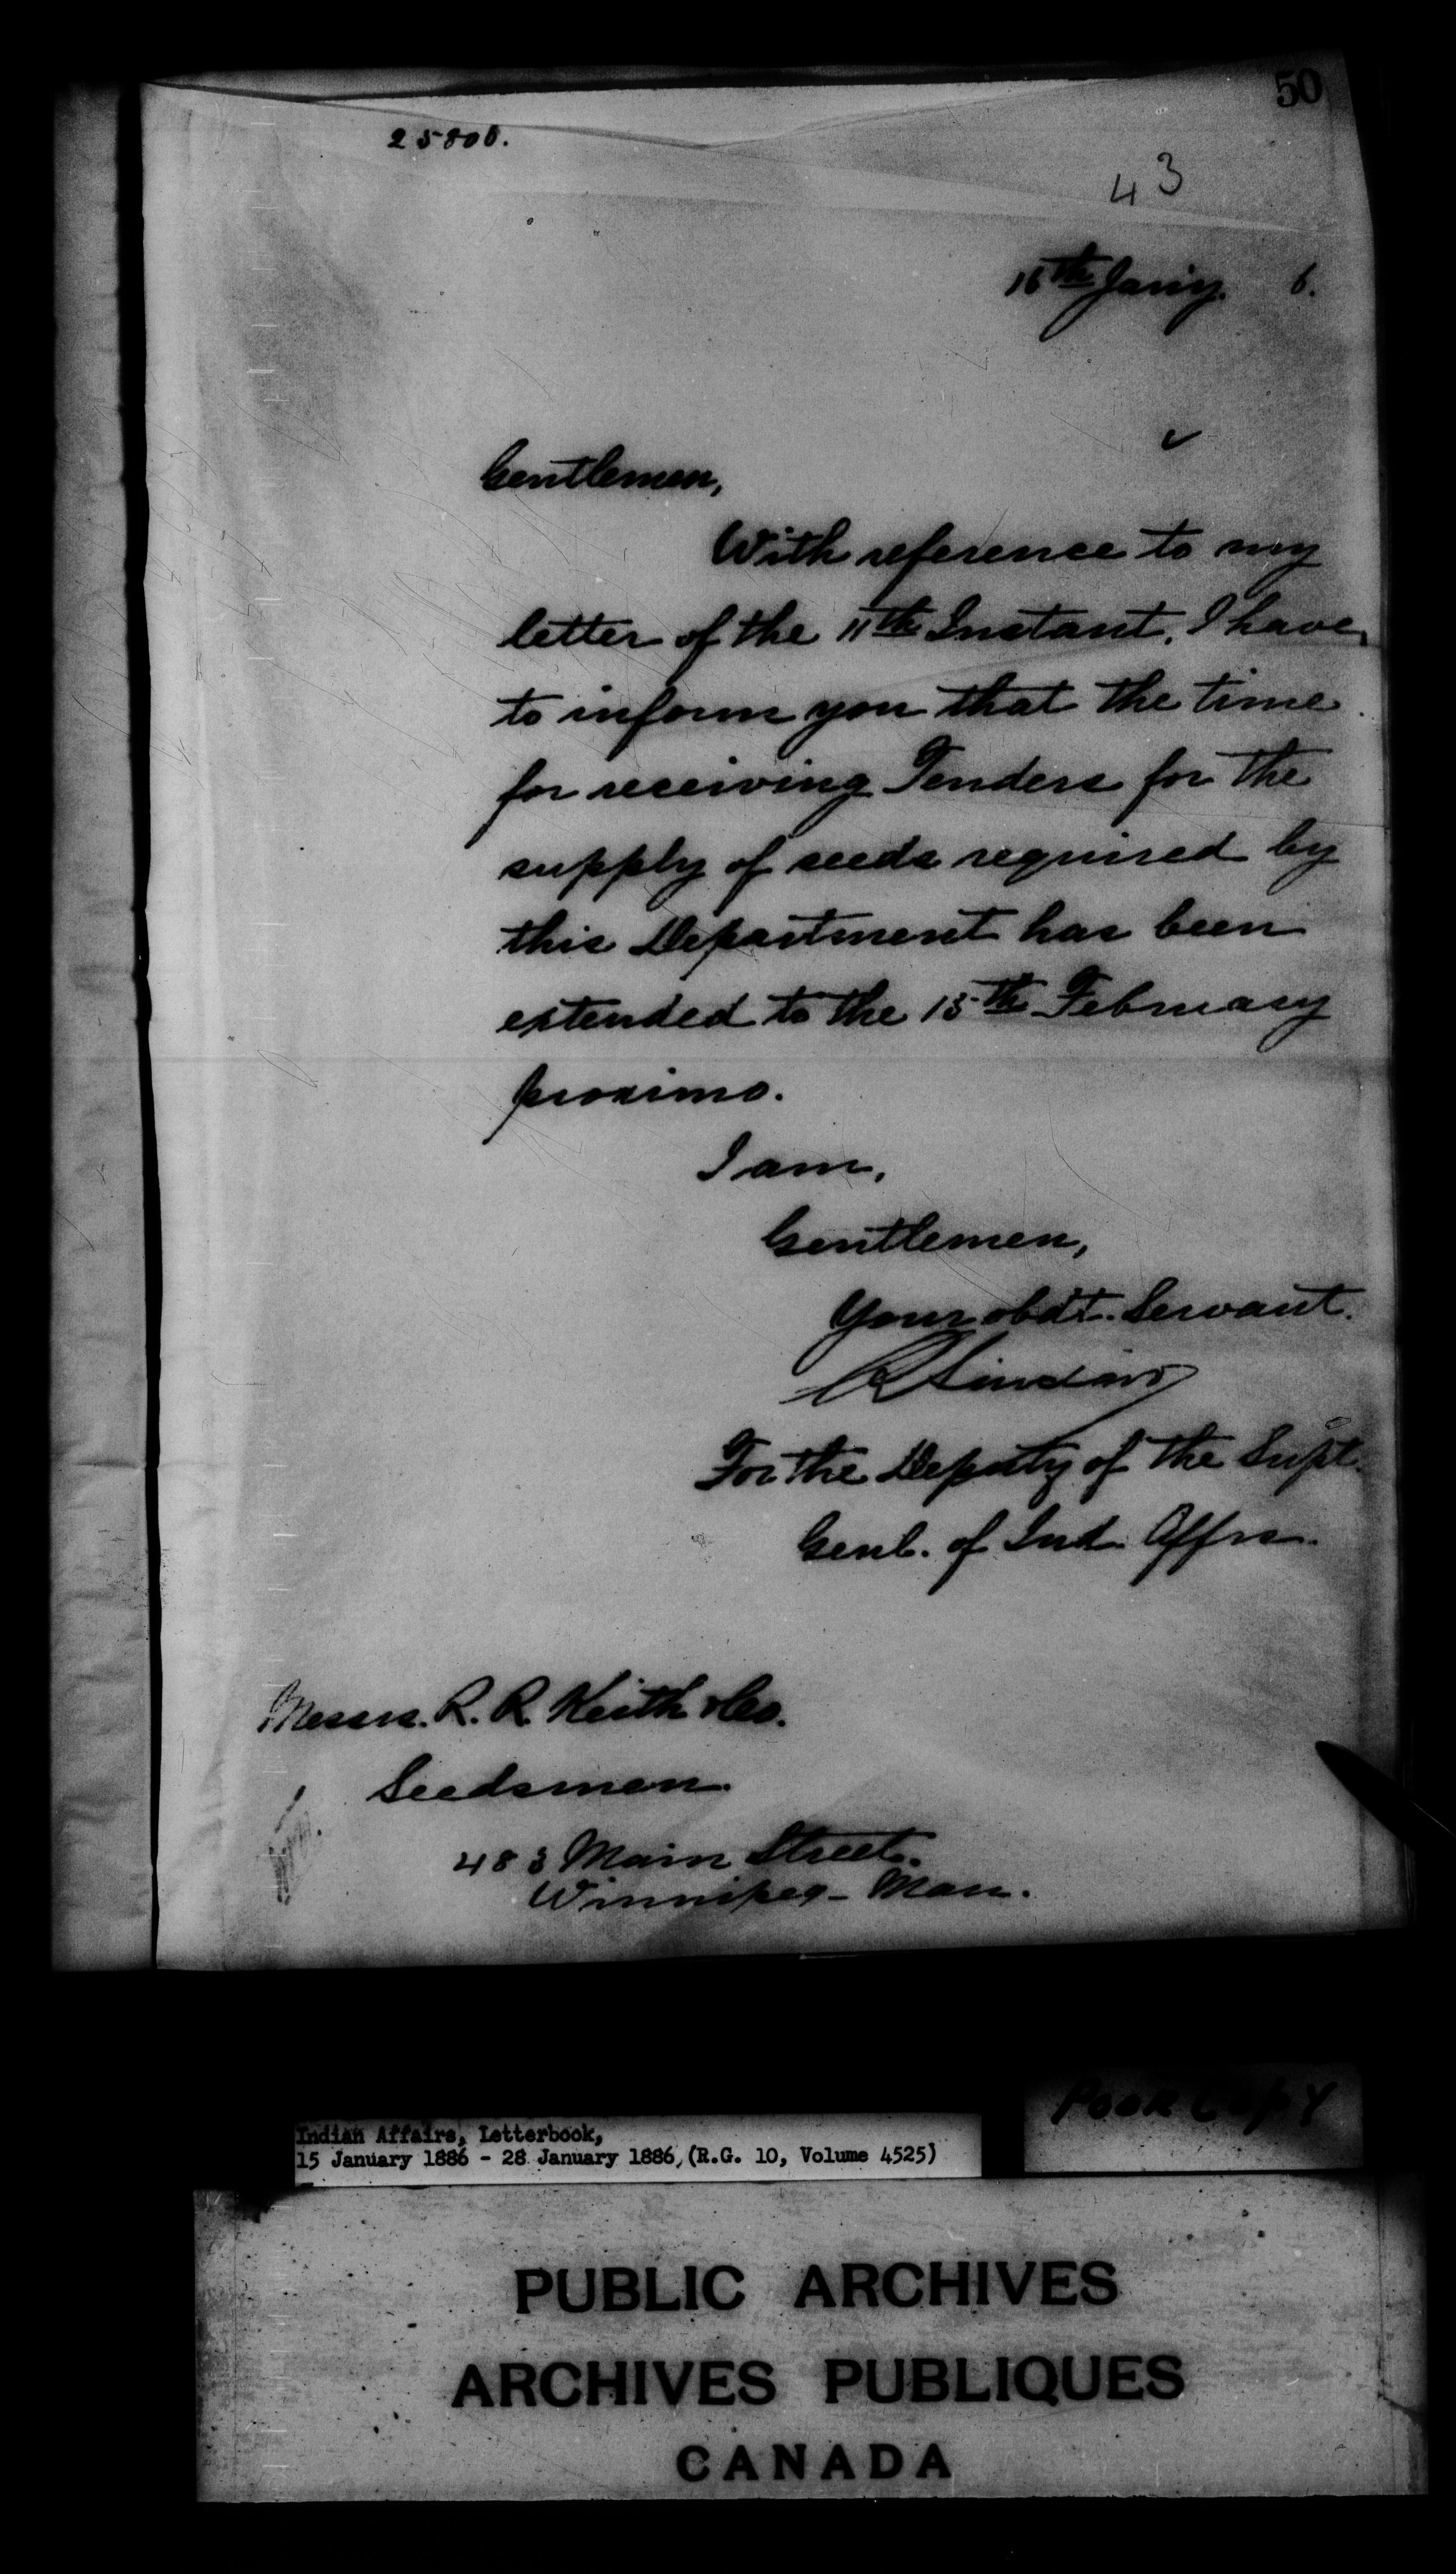 50
25806.
43
16th Jany. 6.
Gentlemen,
With reference to my
letter of the 11th Instant, I have
to inform you that the time
for receiving Tenders for the
supply of seeds required by
this Department has been
extended to the 15th February
proximo.
I am,
Gentlemen,
Your obdt. Servant.
R Sinclair
For the Deputy of the Supt.
Genl. of Ind. Affrs.
Messrs. R. R. Keith & Co.
Seedsmen.
483 Main Street.
Winnipeg - Man.
POOR COPY
Indian Affairs, Letterbook,
15 January 1886 - 28 January 1886, (R.G. 10, Volume 4525)
PUBLIC ARCHIVES
ARCHIVES PUBLIQUES
CANADA